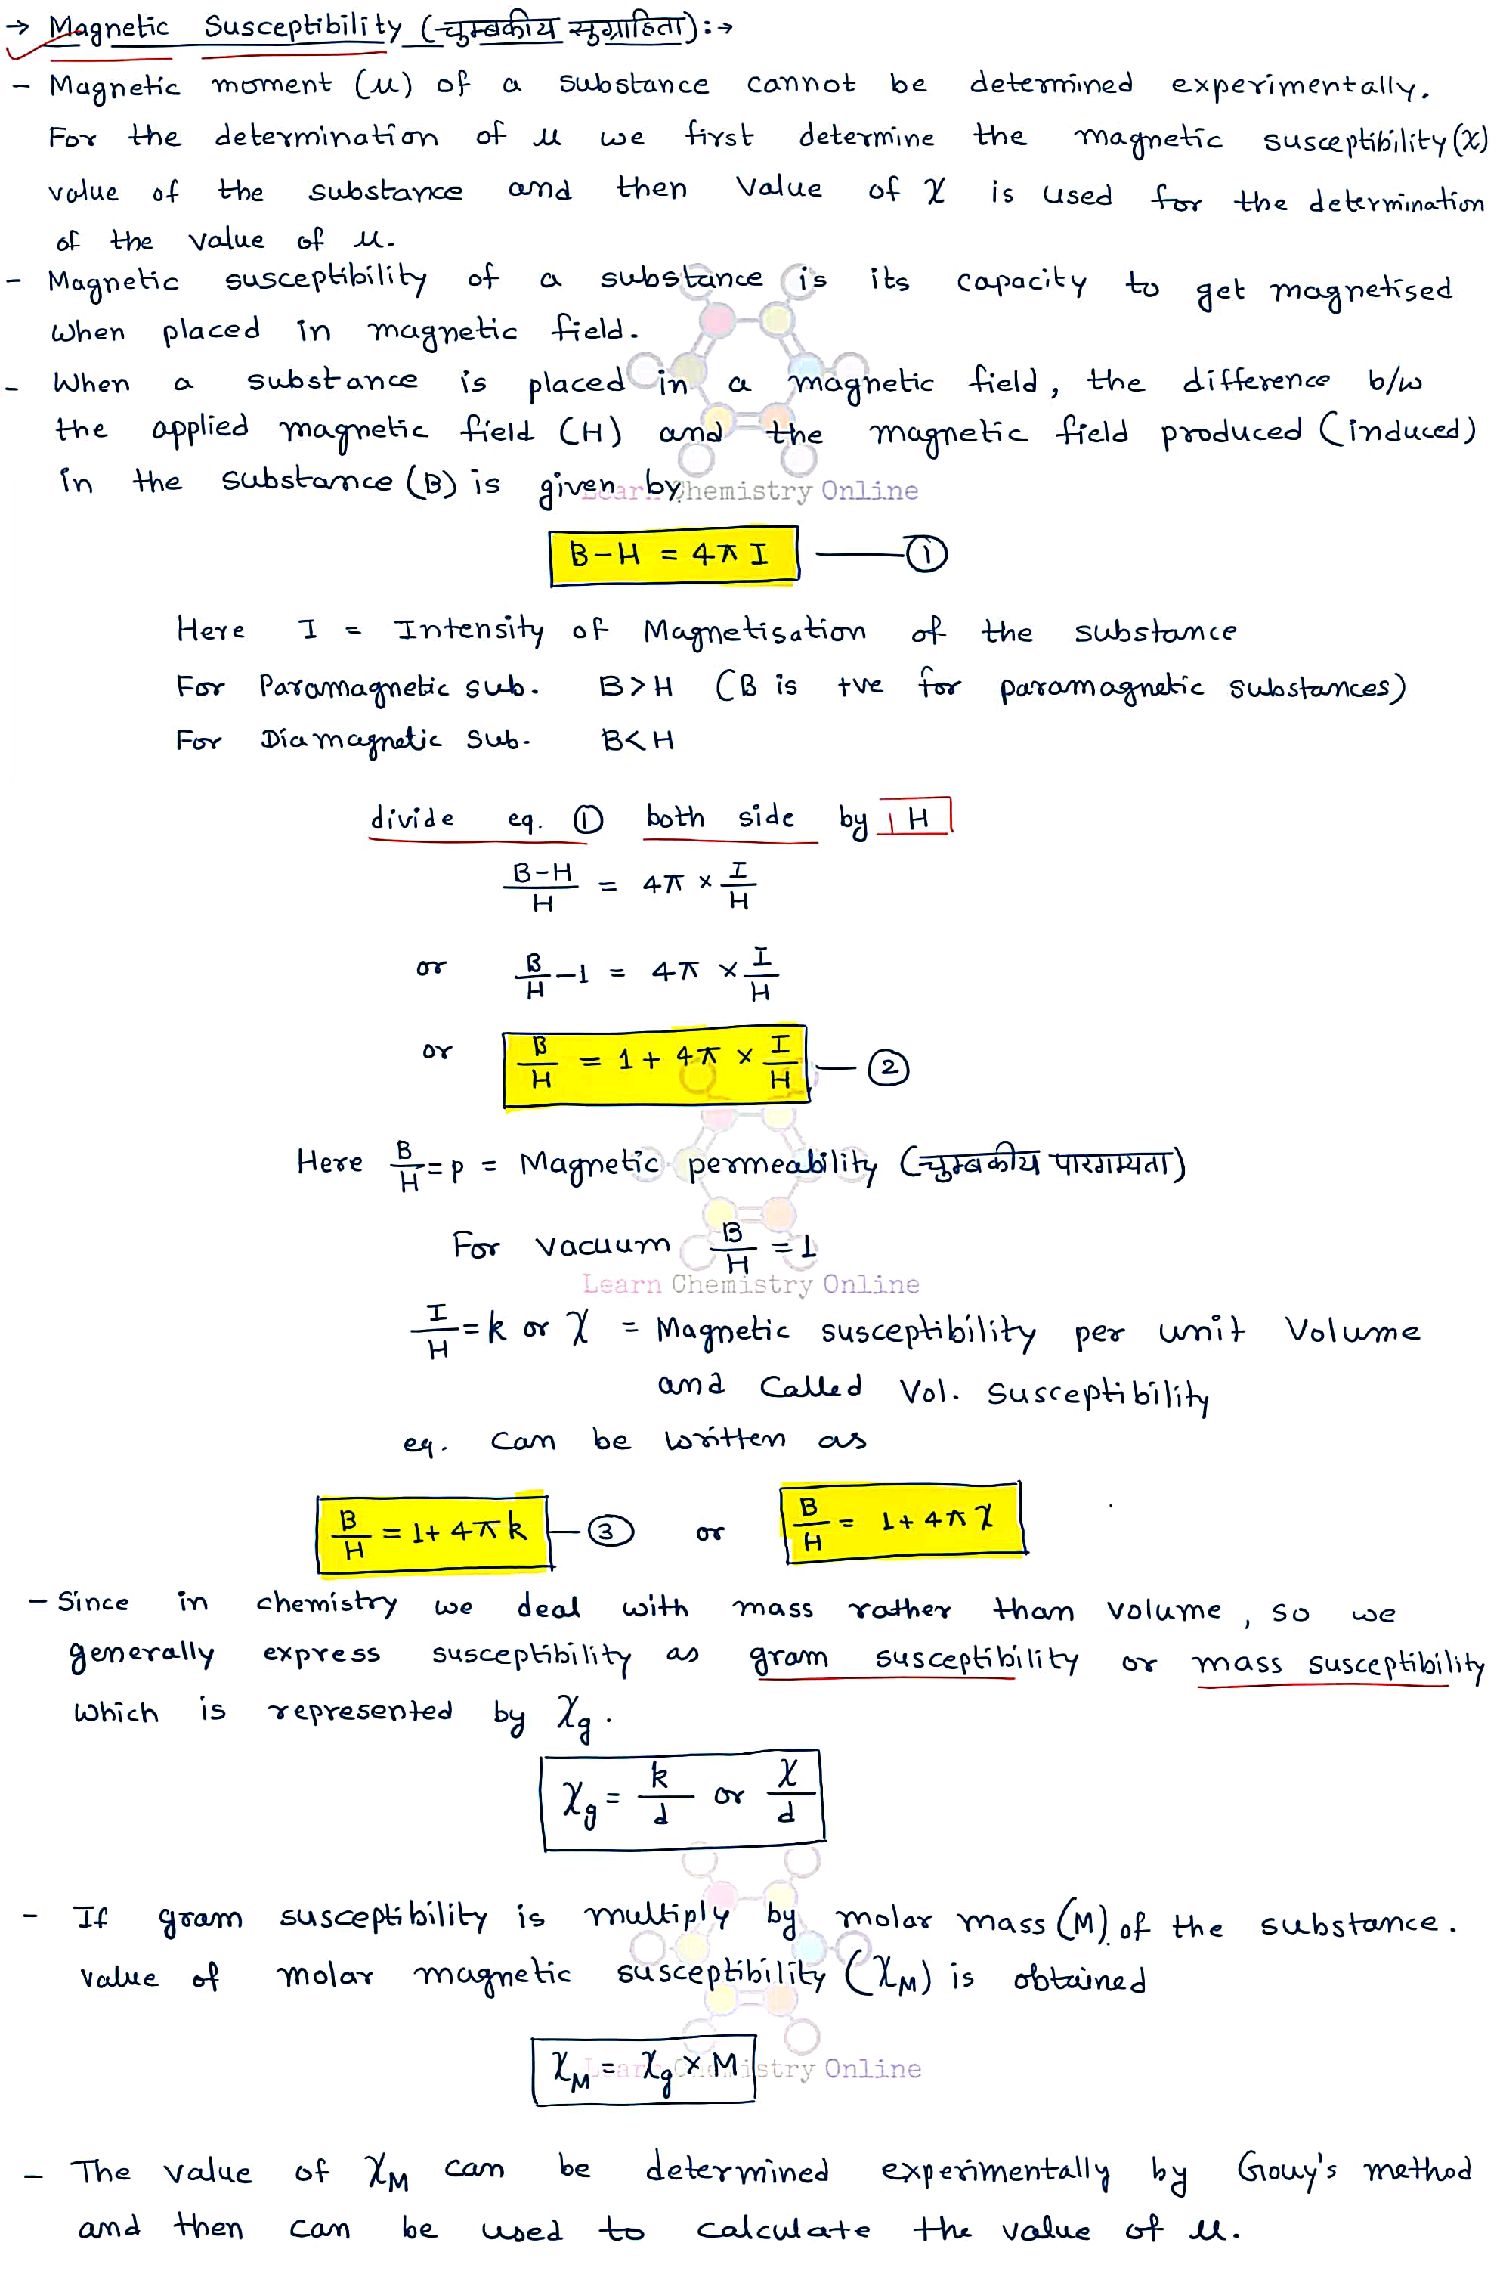 → Magnetic Susceptibility (चुम्बकीय सुग्राहिता):→
- Magnetic moment (μ) of a substance cannot be determined experimentally.
For the determination of μ we first determine the magnetic susceptibility(χ)
value of the substance and then value of χ is used for the determination
of the value of μ.
- Magnetic susceptibility of a substance is its capacity to get magnetised
when placed in magnetic field.
- When a substance is placed in a magnetic field, the difference b/w
the applied magnetic field (H) and the magnetic field produced (induced)
in the substance (B) is given by
Learn Chemistry Online
B-H = 4π I —— ①
Here I = Intensity of Magnetisation of the substance
For Paramagnetic sub. B>H (B is +ve for paramagnetic substances)
For Diamagnetic Sub. B<H
divide eq. ① both side by H
B-H/H = 4π × I/H
or B/H -1 = 4π × I/H
or B/H = 1 + 4π × I/H — ②
Here B/H = P = Magnetic permeability (चुम्बकीय पारगम्यता)
For vacuum B/H = 1
Learn Chemistry Online
I/H = k or χ = Magnetic susceptibility per unit Volume
and called Vol. Susceptibility
eq. can be written as
B/H = 1+ 4π k — ③ or B/H = 1+ 4π χ
- Since in chemistry we deal with mass rather than volume, so we
generally express susceptibility as gram susceptibility or mass susceptibility
which is represented by χg.
χg = k/d or χ/d
- If gram susceptibility is multiply by molar mass (M) of the substance.
value of molar magnetic susceptibility (χM) is obtained
χM = χg × M
Learn Chemistry Online
- The value of χM can be determined experimentally by Gouy's method
and then can be used to calculate the value of μ.